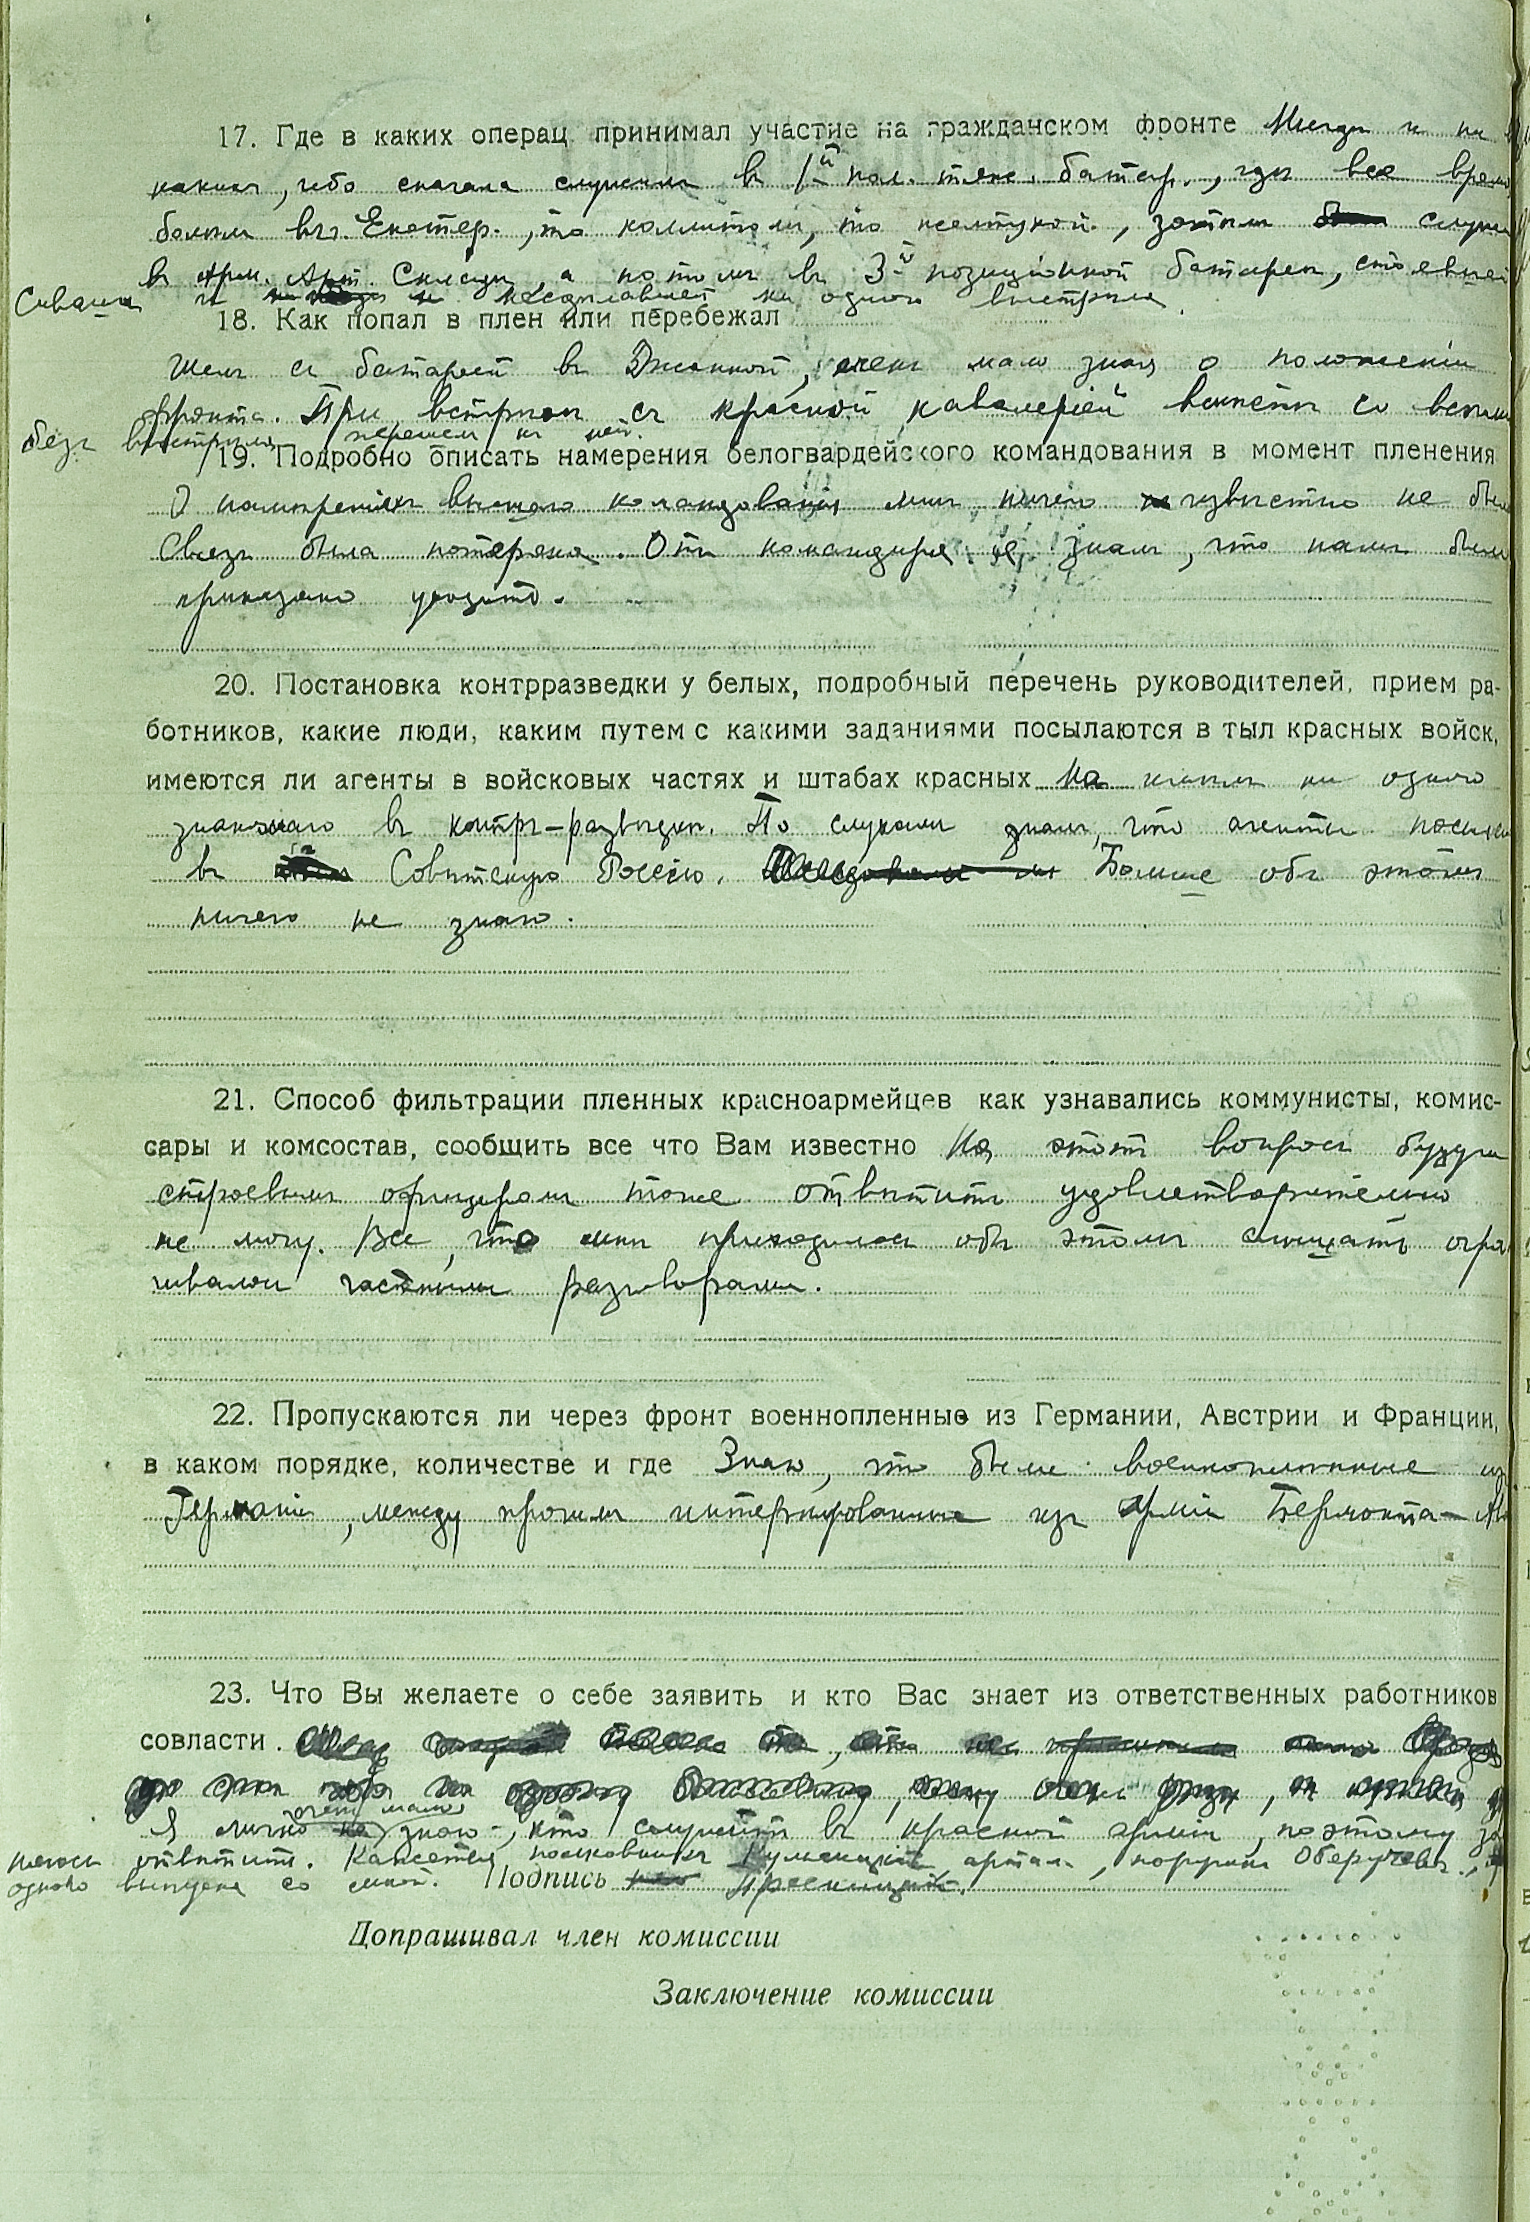 17. Где в каких операц. принимал участие на гражданском фронте Нигде и ни
каких, ибо сначала служилъ въ 1-й пол. тяж. батар., гдѣ все время
болѣлъ въ г. Екатер., то колитомъ, то желтухой, затѣмъ служ
въ Арм. Арт. Складѣ, а потомъ въ 3-й позиціонной батареѣ, стоявшей
Сиваша и несдѣлавшей ни одного выстрѣла.
18. Как попал в плен или перебежал
Шелъ съ батареей въ Джанкой, очень мало зная о положеніи
фронта. При встрѣчѣ съ красной кавалеріей вмѣстѣ со всѣми
безъ выстрѣла перешелъ къ ней.
19. Подробно описать намерения белогвардейского командования в момент пленения
О намѣреніяхъ высшаго командованія мнѣ ничего извѣстно не было
Связь была потеряна. Отъ командира я знал, что намъ было
приказано уходить.
20. Постановка контрразведки у белых, подробный перечень руководителей, прием ра-
ботников, какие люди, каким путем с какими заданиями посылаются в тыл красных войск,
имеются ли агенты в войсковых частях и штабах красных Не имѣлъ ни одного
знакомаго въ контръ-развѣдкѣ. По слухамъ зналъ, что агенты посыл
въ Совѣтскую Россію. Больше объ этомъ
ничего не знаю.
21. Способ фильтрации пленных красноармейцев как узнавались коммунисты, комис-
сары и комсостав, сообщить все что Вам известно На этотъ вопросъ будучи
строевымъ офицеромъ тоже отвѣтить удовлетворительно
не могу. Все, что мнѣ приходилось объ этомъ слышать огра
чивалось частными разговорами.
22. Пропускаются ли через фронт военнопленные из Германии, Австрии и Франции,
в каком порядке, количестве и где Знаю, что были военнопленные изъ
Германіи, между прочимъ интернированные изъ арміи Бермонта-Ав
23. Что Вы желаете о себе заявить и кто Вас знает из ответственных работников
совласти.
Я лично очень мало знаю, кто служитъ въ красной арміи, поэтому за
отвѣтить. Кажется полковникъ артил., поручикъ Оберучевъ,
одного выпуска со мной. Подпись
Допрашивал член комиссии
Заключение комиссии